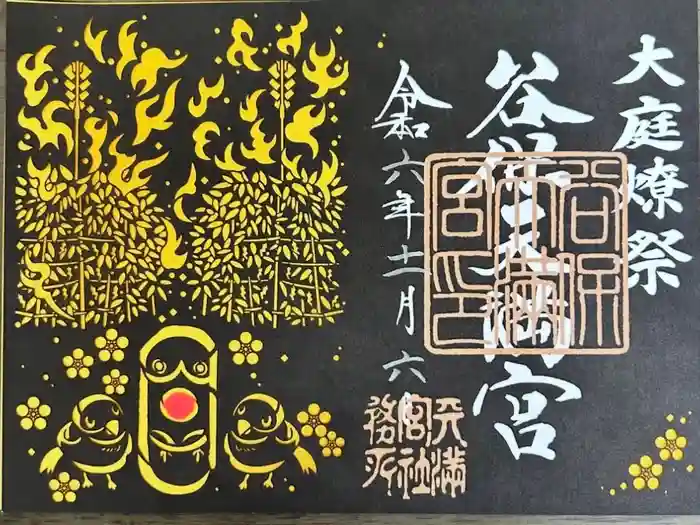 大庭燎祭
谷保天満宮
令和六年十一月六日
谷保
天満
宮印
天満
宮社
務所